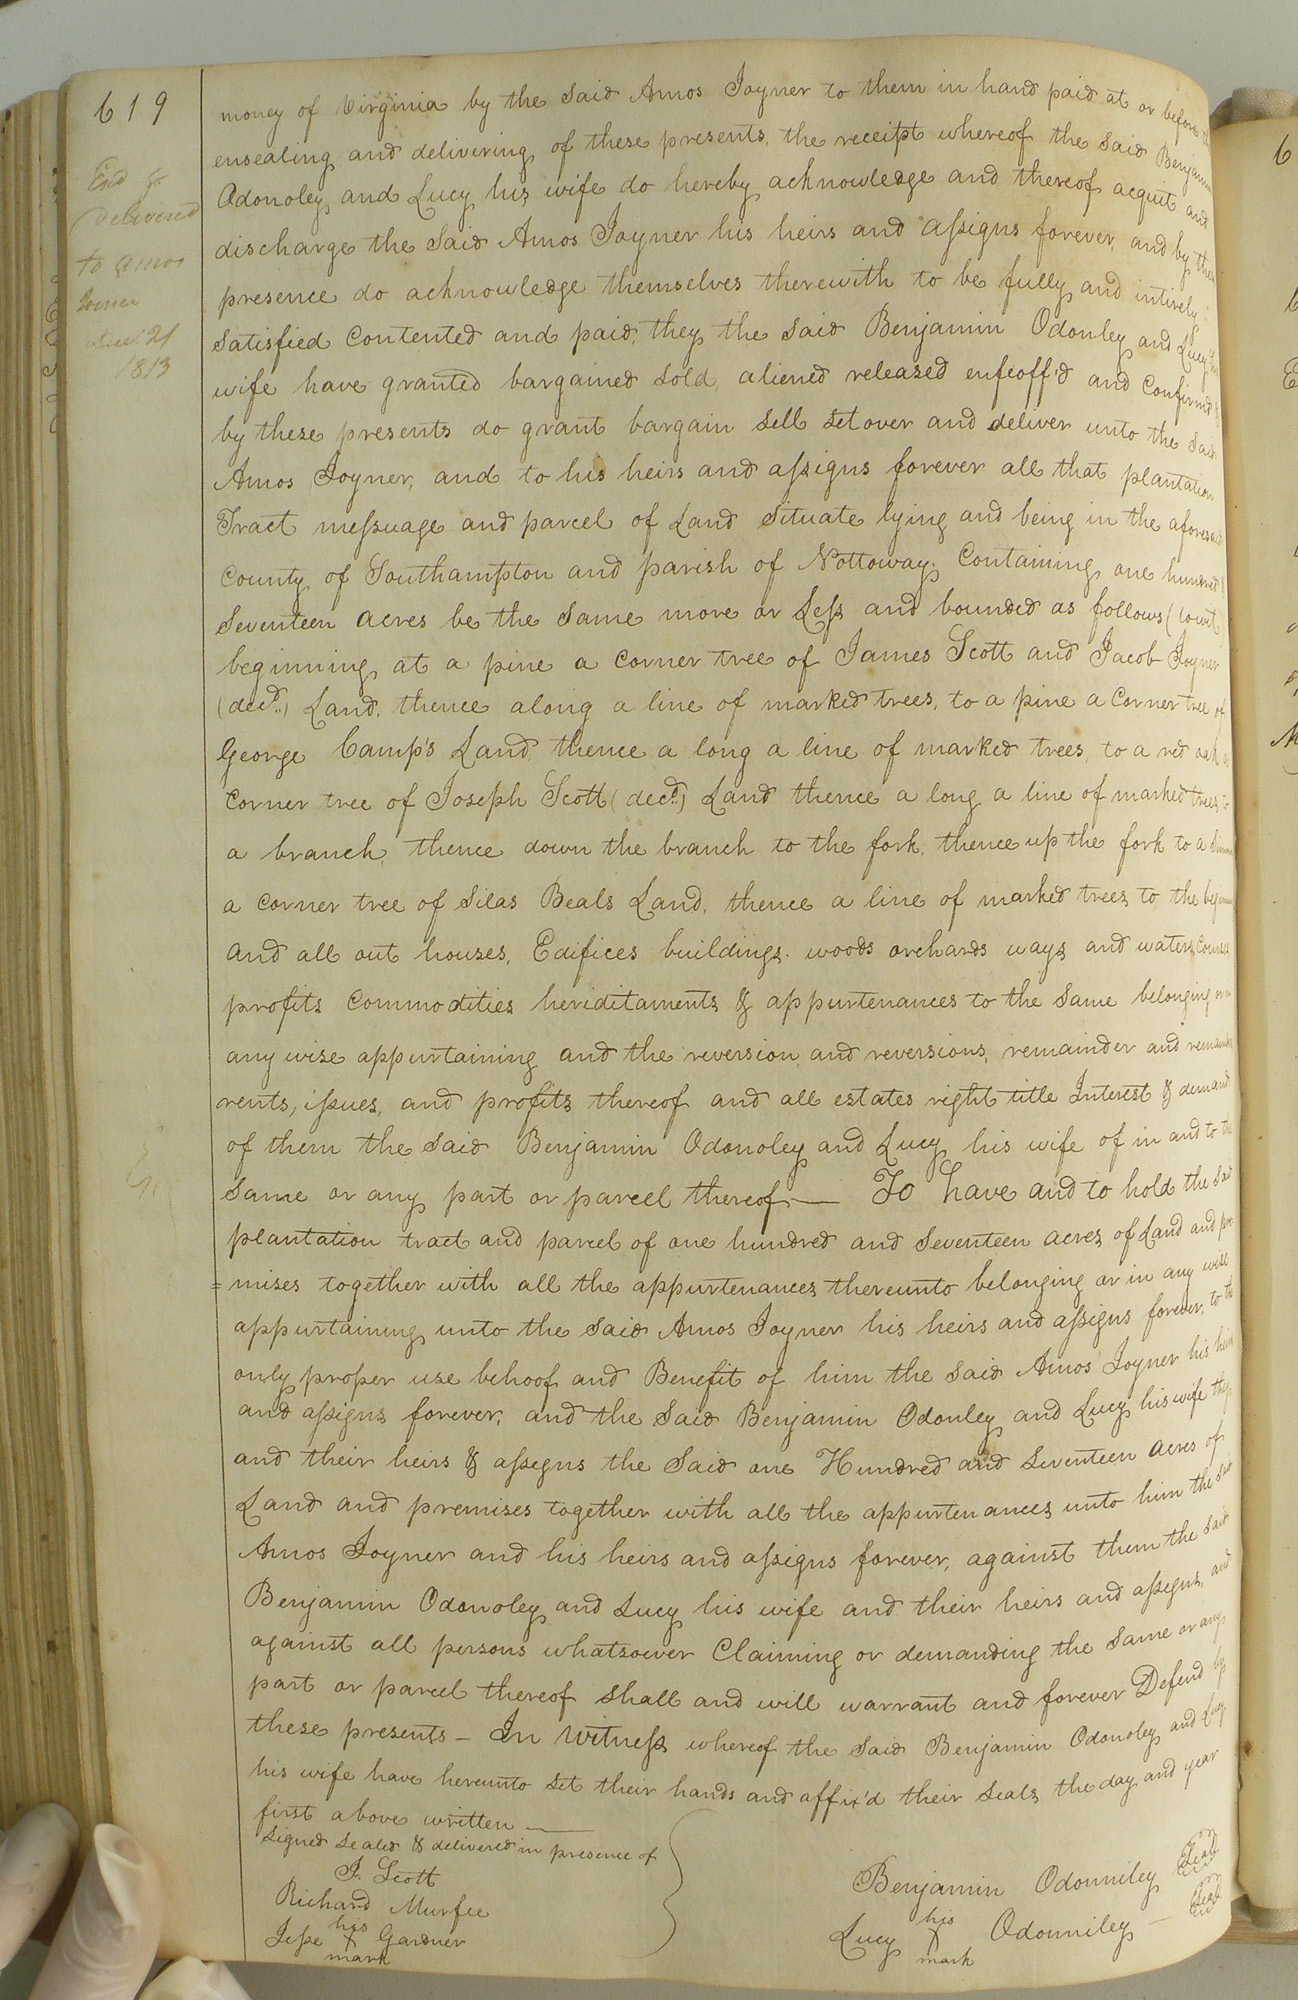 619
End &
delivered
to Amos
Joyner
Decr 21
1813
money of Virginia by the said Amos Joyner to them in hand paid at or before the
ensealing and delivering of these presents, the receipt whereof the said Benjamin
Odonoley and Lucy his wife do hereby acknowledge and thereof acquit and
discharge the said Amos Joyner his heirs and assigns forever, and by these
presence do acknowledge themselves therewith to be fully and intirely
satisfied contented and paid, they the said Benjamin Odonley and Lucy his
wife have granted bargained sold, aliened released enfeoff'd and confirmd &
by these presents do grant bargain sell set over and deliver unto the said
Amos Joyner, and to his heirs and assigns forever all that plantation
Tract messuage and parcel of Land situate lying and being in the aforesaid
County of Southampton and parish of Nottoway. Containing one hundred &
seventeen acres be the same more or Less and bounded as follows (towit)
beginning at a pine a corner tree of James Scott and Jacob Joyner
(decd.) Land, thence along a line of marked trees, to a pine a corner tree of
George Camp's Land thence a long a line of marked trees, to a red oak a
corner tree of Joseph Scott (decd.) Land thence a long a line of marked trees to
a branch, thence down the branch to the fork, thence up the fork to a
a corner tree of Silas Beals Land, thence a line of marked trees to the
and all out houses, Edifices buildings. woods orchards ways and waters, courses
profits commodities heriditaments & appurtenances to the same belonging or in
any wise appurtaining and the reversion, and reversions, remainder and remainders
rents, issues, and profits thereof and all estates right title Interest & demand
of them the said Benjamin Odonoley and Lucy his wife of in and to the
same or any part or parcel thereof — To have and to hold the said
plantation tract and parcel of one hundred and seventeen acres of Land and pre
=mises together with all the appurtenances thereunto belonging or in any wise
appurtaining unto the said Amos Joyner his heirs and assigns forever, to the
only proper use behoof and Benefit of him the said Amos Joyner his heirs
and assigns forever, and the said Benjamin Odonley and Lucy his wife they
and their heirs & assegns the said one Hundred and seventeen acres of
Land and premises together with all the appurtenances unto him the said
Amos Joyner and his heirs and assigns forever, against them the said
Benjamin Odonoley and Lucy his wife and their heirs and assegns, and
against all persons whatsoever Claiming or demanding the same or any
part or parcel thereof shall and will warrant and forever Defend by
these presents — In Witness whereof the said Benjamin Odonoley and Lucy
his wife have hereunto set their hands and affix'd their seals the day and year
first above written —
Signed sealed & delivered in presence of
J. Scott
Richard Murfee
Jesse his X mark Gardner
Benjamin Odonniley Seal
Lucy his X mark Odonniley — Seal